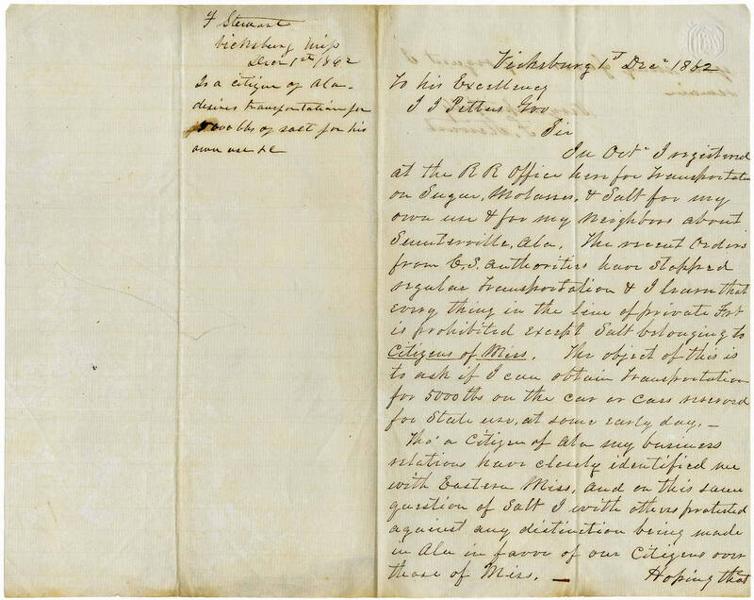 F Stewart
Vicksburg Miss
Decr 1st 1862
Is a citizen of Ala-
desires transportation for
5000 lbs of salt for his
own use &c
Vicksburg 1st Decr 1862
To his Excellency
J J Pettus Gov
Sir
In Octr I registered
at the R R Office here for Transportatn
on Sugar, Molasses, & Salt for my
own use & for my neighbors about
Sumterville, Ala. The recent Orders
from C.S. Authorities have stopped
regular Transportation & I learn that
every thing in the line of private Frt
is prohibited except Salt belonging to
Citizens of Miss. The object of this is
to ask if I can obtain Transportation
for 5000 lbs on the car or cars reserved
for State use, at some early day. –
Tho' a Citizen of Ala my business
relations have closely identified me
with Eastern Miss, and on this same
question of Salt I with others protested
against any distinction being made
in Ala in favor of our Citizens over
those of Miss. – Hoping that